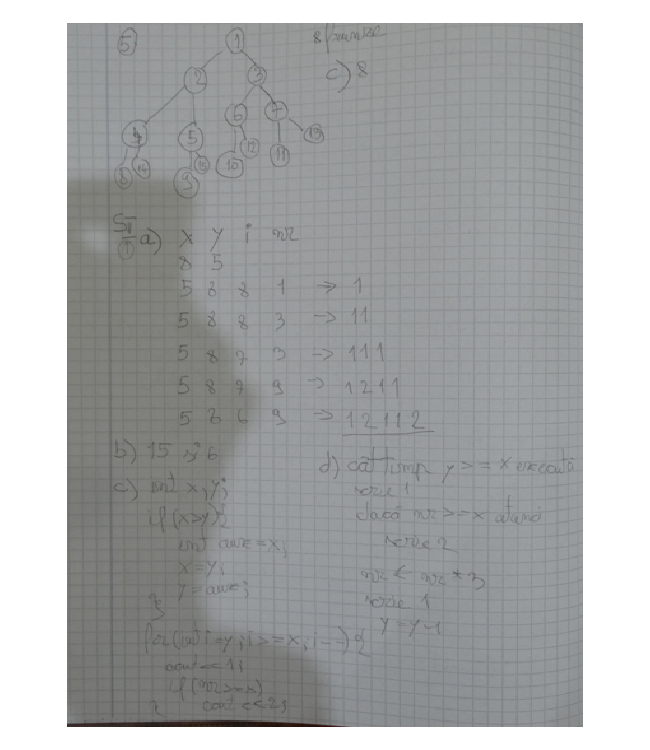 5
1
8 frunze
2 3
c) 8
4 5 6 7
8 14 9 15 10 12 11 13
SII
I a) x y i nr
8 5
5 8 8 1 → 1
5 8 8 3 → 11
5 8 7 3 → 111
5 8 7 9 → 1211
5 8 6 9 → 12112
b) 15 și 6
c) int x, y;
if(x>y){
int aux=x;
x=y;
y=aux;
}
for(int i=y; i>=x; i--){
cout<<1;
if(nr>=x)
cout<<2;
}
d) cat timp y >= x executa
scrie 1
daca nr >= x atunci
scrie 2
nr ← nr * 3
scrie 1
y = y-1